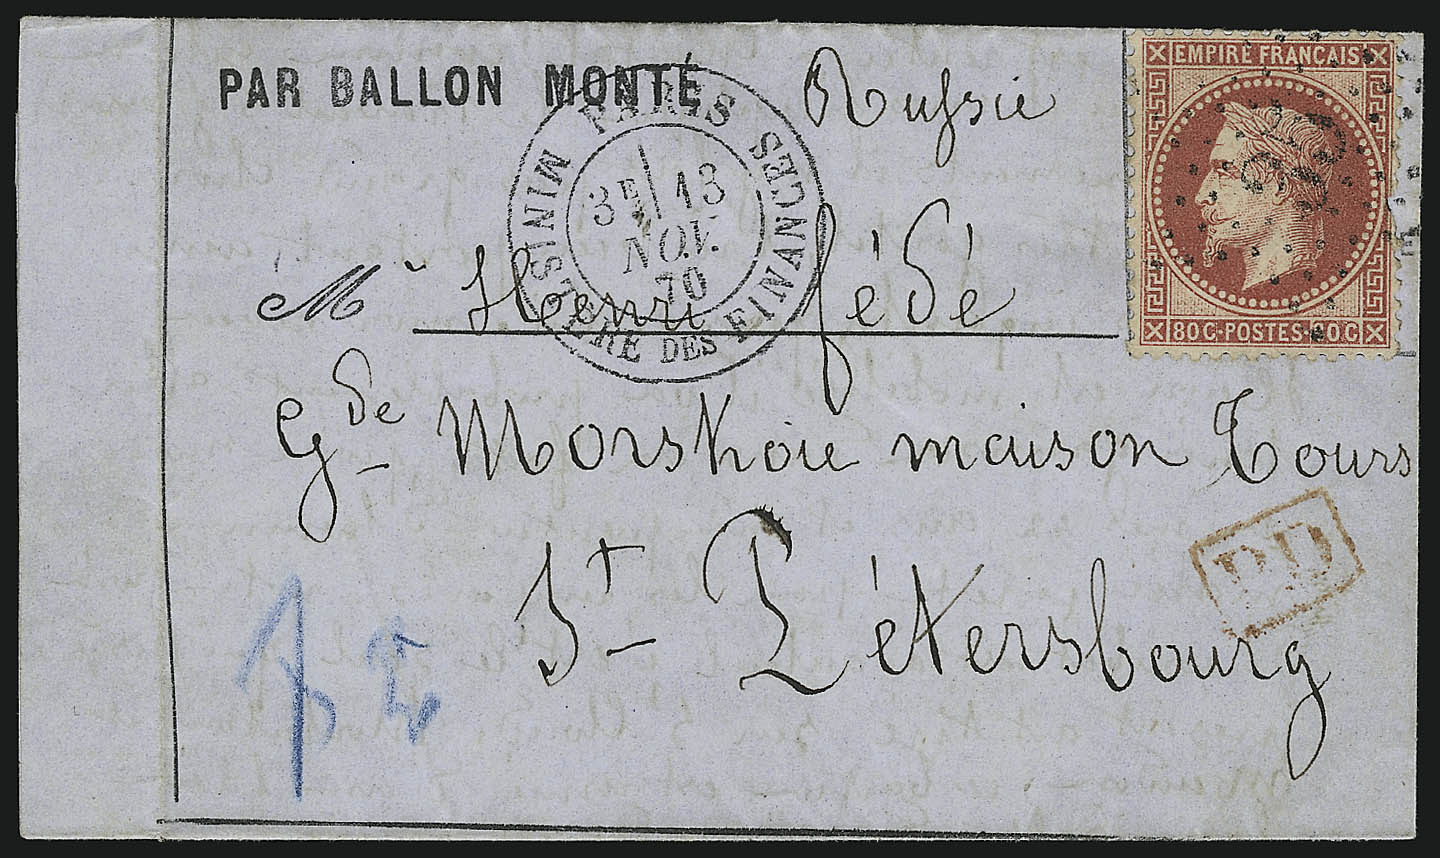 PAR BALLON MONTÉ
Russie
PARIS
MINISTÈRE DES FINANCES
3E 13
NOV.
70
EMPIRE FRANÇAIS
80 C-POSTES-80 C
Mr Henri Fédé
Gde Morskoie maison Tours
St Pétersbourg
PD